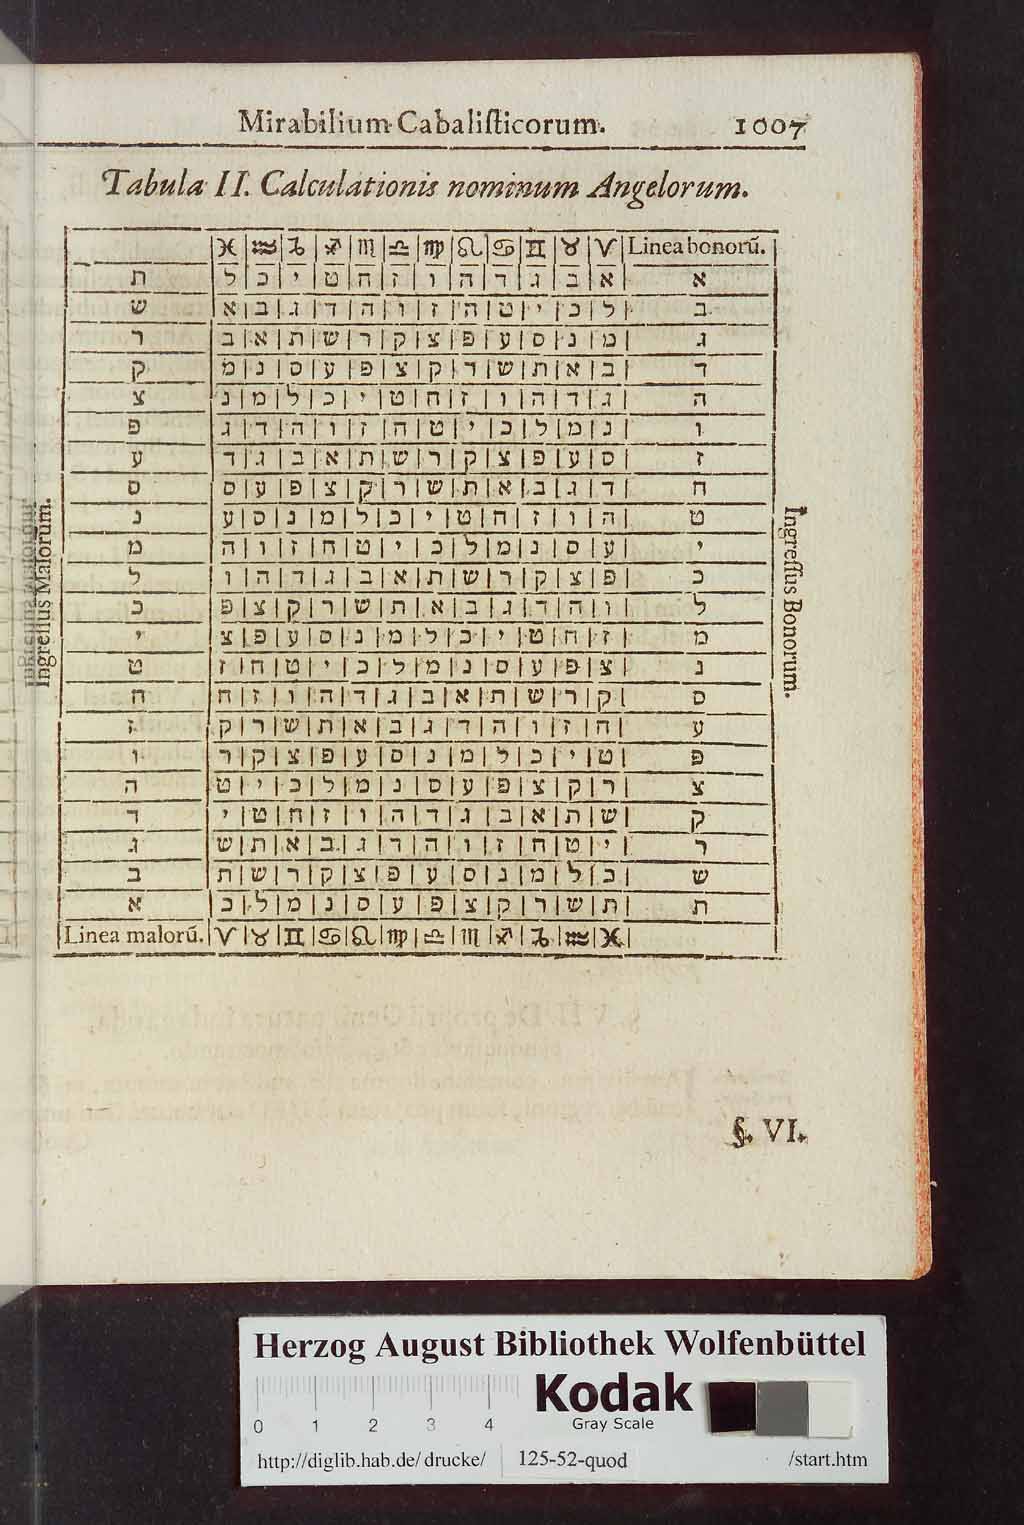 Mirabilium Cabalisticorum. 1007
Tabula II. Calculationis nominum Angelorum.
♓ ♒ ♑ ♐ ♏ ♎ ♍ ♌ ♋ ♊ ♉ ♈ Linea bonorū.
א א ב ג ד ה ו ז ח ט י כ ל ת
ב ל כ י ט ח ז ו ה ד ג ב א ש
ג מ נ ס ע פ צ ק ר ש ת א ב ר
ד ב א ת ש ר ק צ פ ע ס נ מ ק
ה ג ד ה ו ז ח ט י כ ל מ נ צ
ו נ מ ל כ י ט ח ז ו ה ד ג פ
ז ס ע פ צ ק ר ש ת א ב ג ד ע
ח ד ג ב א ת ש ר ק צ פ ע ס ס
ט ה ו ז ח ט י כ ל מ נ ס ע נ
י ע ס נ מ ל כ י ט ח ז ו ה מ
כ פ צ ק ר ש ת א ב ג ד ה ו ל
ל ו ה ד ג ב א ת ש ר ק צ פ כ
מ ז ח ט י כ ל מ נ ס ע פ צ י
נ צ פ ע ס נ מ ל כ י ט ח ז ט
ס ק ר ש ת א ב ג ד ה ו ז ח ח
ע ח ז ו ה ד ג ב א ת ש ר ק ז
פ ט י כ ל מ נ ס ע פ צ ק ר ו
צ ר ק צ פ ע ס נ מ ל כ י ט ה
ק ש ת א ב ג ד ה ו ז ח ט י ד
ר י ט ח ז ו ה ד ג ב א ת ש ג
ש כ ל מ נ ס ע פ צ ק ר ש ת ב
ת ת ש ר ק צ פ ע ס נ מ ל כ א
Linea malorū. ♈ ♉ ♊ ♋ ♌ ♍ ♎ ♏ ♐ ♑ ♒ ♓
Ingressus Malorum.
Ingressus Bonorum.
§. VI.
Herzog August Bibliothek Wolfenbüttel
Kodak
Gray Scale
0 1 2 3 4
http://diglib.hab.de/drucke/ 125-52-quod /start.htm